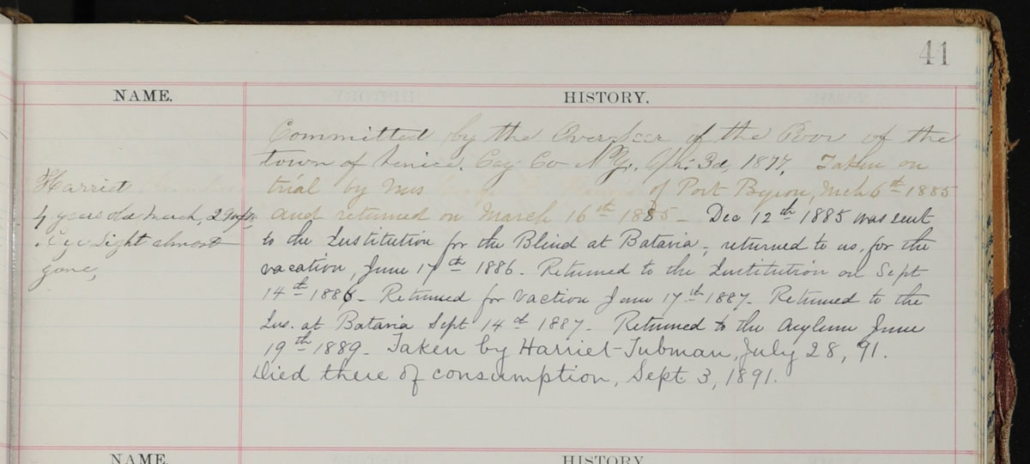 41
NAME.
HISTORY.
Committed by the Overseer of the Poor of the
town of Venice. Cay. Co N.Y. 3d, 1877. Taken on
trial by Mrs of Port Byron, Mch 6th 1885
and returned on March 16th 1885 - Dec 12th 1885 was sent
to the Institution for the Blind at Batavia; returned to us, for the
vacation, June 17th 1886. Returned to the Institution on Sept
14th 1886 - Returned for vaction June 17th 1887. Returned to the
Ins. at Batavia Sept 14th 1887. Returned to the Asylum June
19th 1889. Taken by Harriet Tubman, July 28, 91.
Died there of consumption, Sept 3, 1891.
Harriet
4 years old March,
Eye Sight almost
gone,
NAME.
HISTORY.